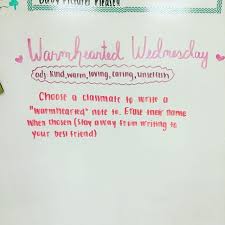 Baby Pictures Please!
Warmhearted Wednesday
adj. kind, warm, loving, caring, unselfish
Choose a classmate to write a
"warmhearted" note to. Erase their name
when chosen (Stay away from writing to
your best friend)